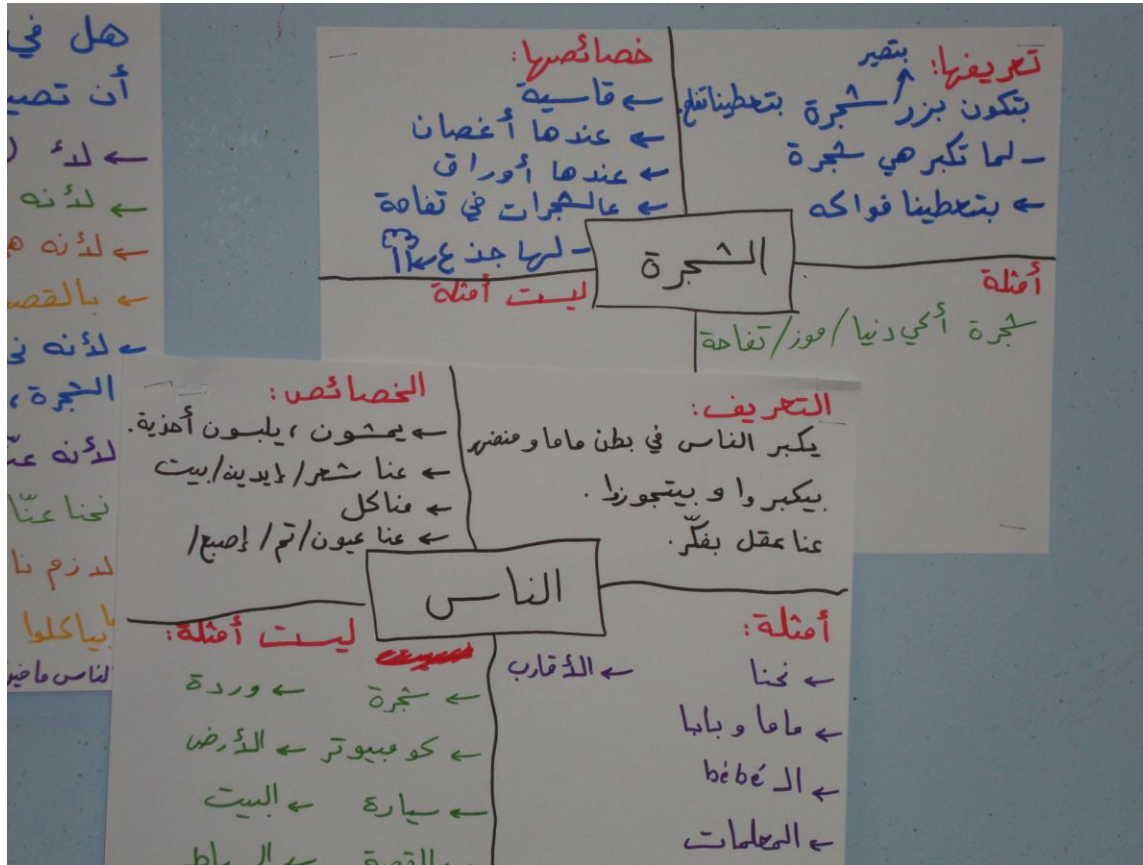 هل في
أن تصي
← لأ
← لأنه
← لأنه ه
← بالقص
← لأنه نح
الشجرة،
لأنه عنّ
نحنا عنّا
لازم نا
بياكلوا
الناس ما في
تعريفها:
بتصير
بتكون بزر / شجرة بتعطينا تفاح
- لما تكبر هي شجرة
← بتعطينا فواكه
خصائصها:
← قاسية
← عندها أغصان
← عندها أوراق
← عالشجرات في تفاحة
- لها جذع ←
الشجرة
أمثلة
شجرة أكي دنيا / موز / تفاحة
ليست أمثلة
التعريف:
يكبر الناس في بطن ماما و منضهر
بيكبروا و بيتجوزوا.
عنا عقل بفكّر.
الخصائص:
← يمشون، يلبسون أحذية.
← عنا شعر / إيدين / بيت
← مناكل
← عنا عيون / تم / إصبع /
الناس
أمثلة:
← نحنا ← الأقارب
← ماما و بابا
← الـ bébé
← المعلمات
ليست أمثلة:
← شجرة ← وردة
← كومبيوتر ← الأرض
← سيارة ← البيت
القصة